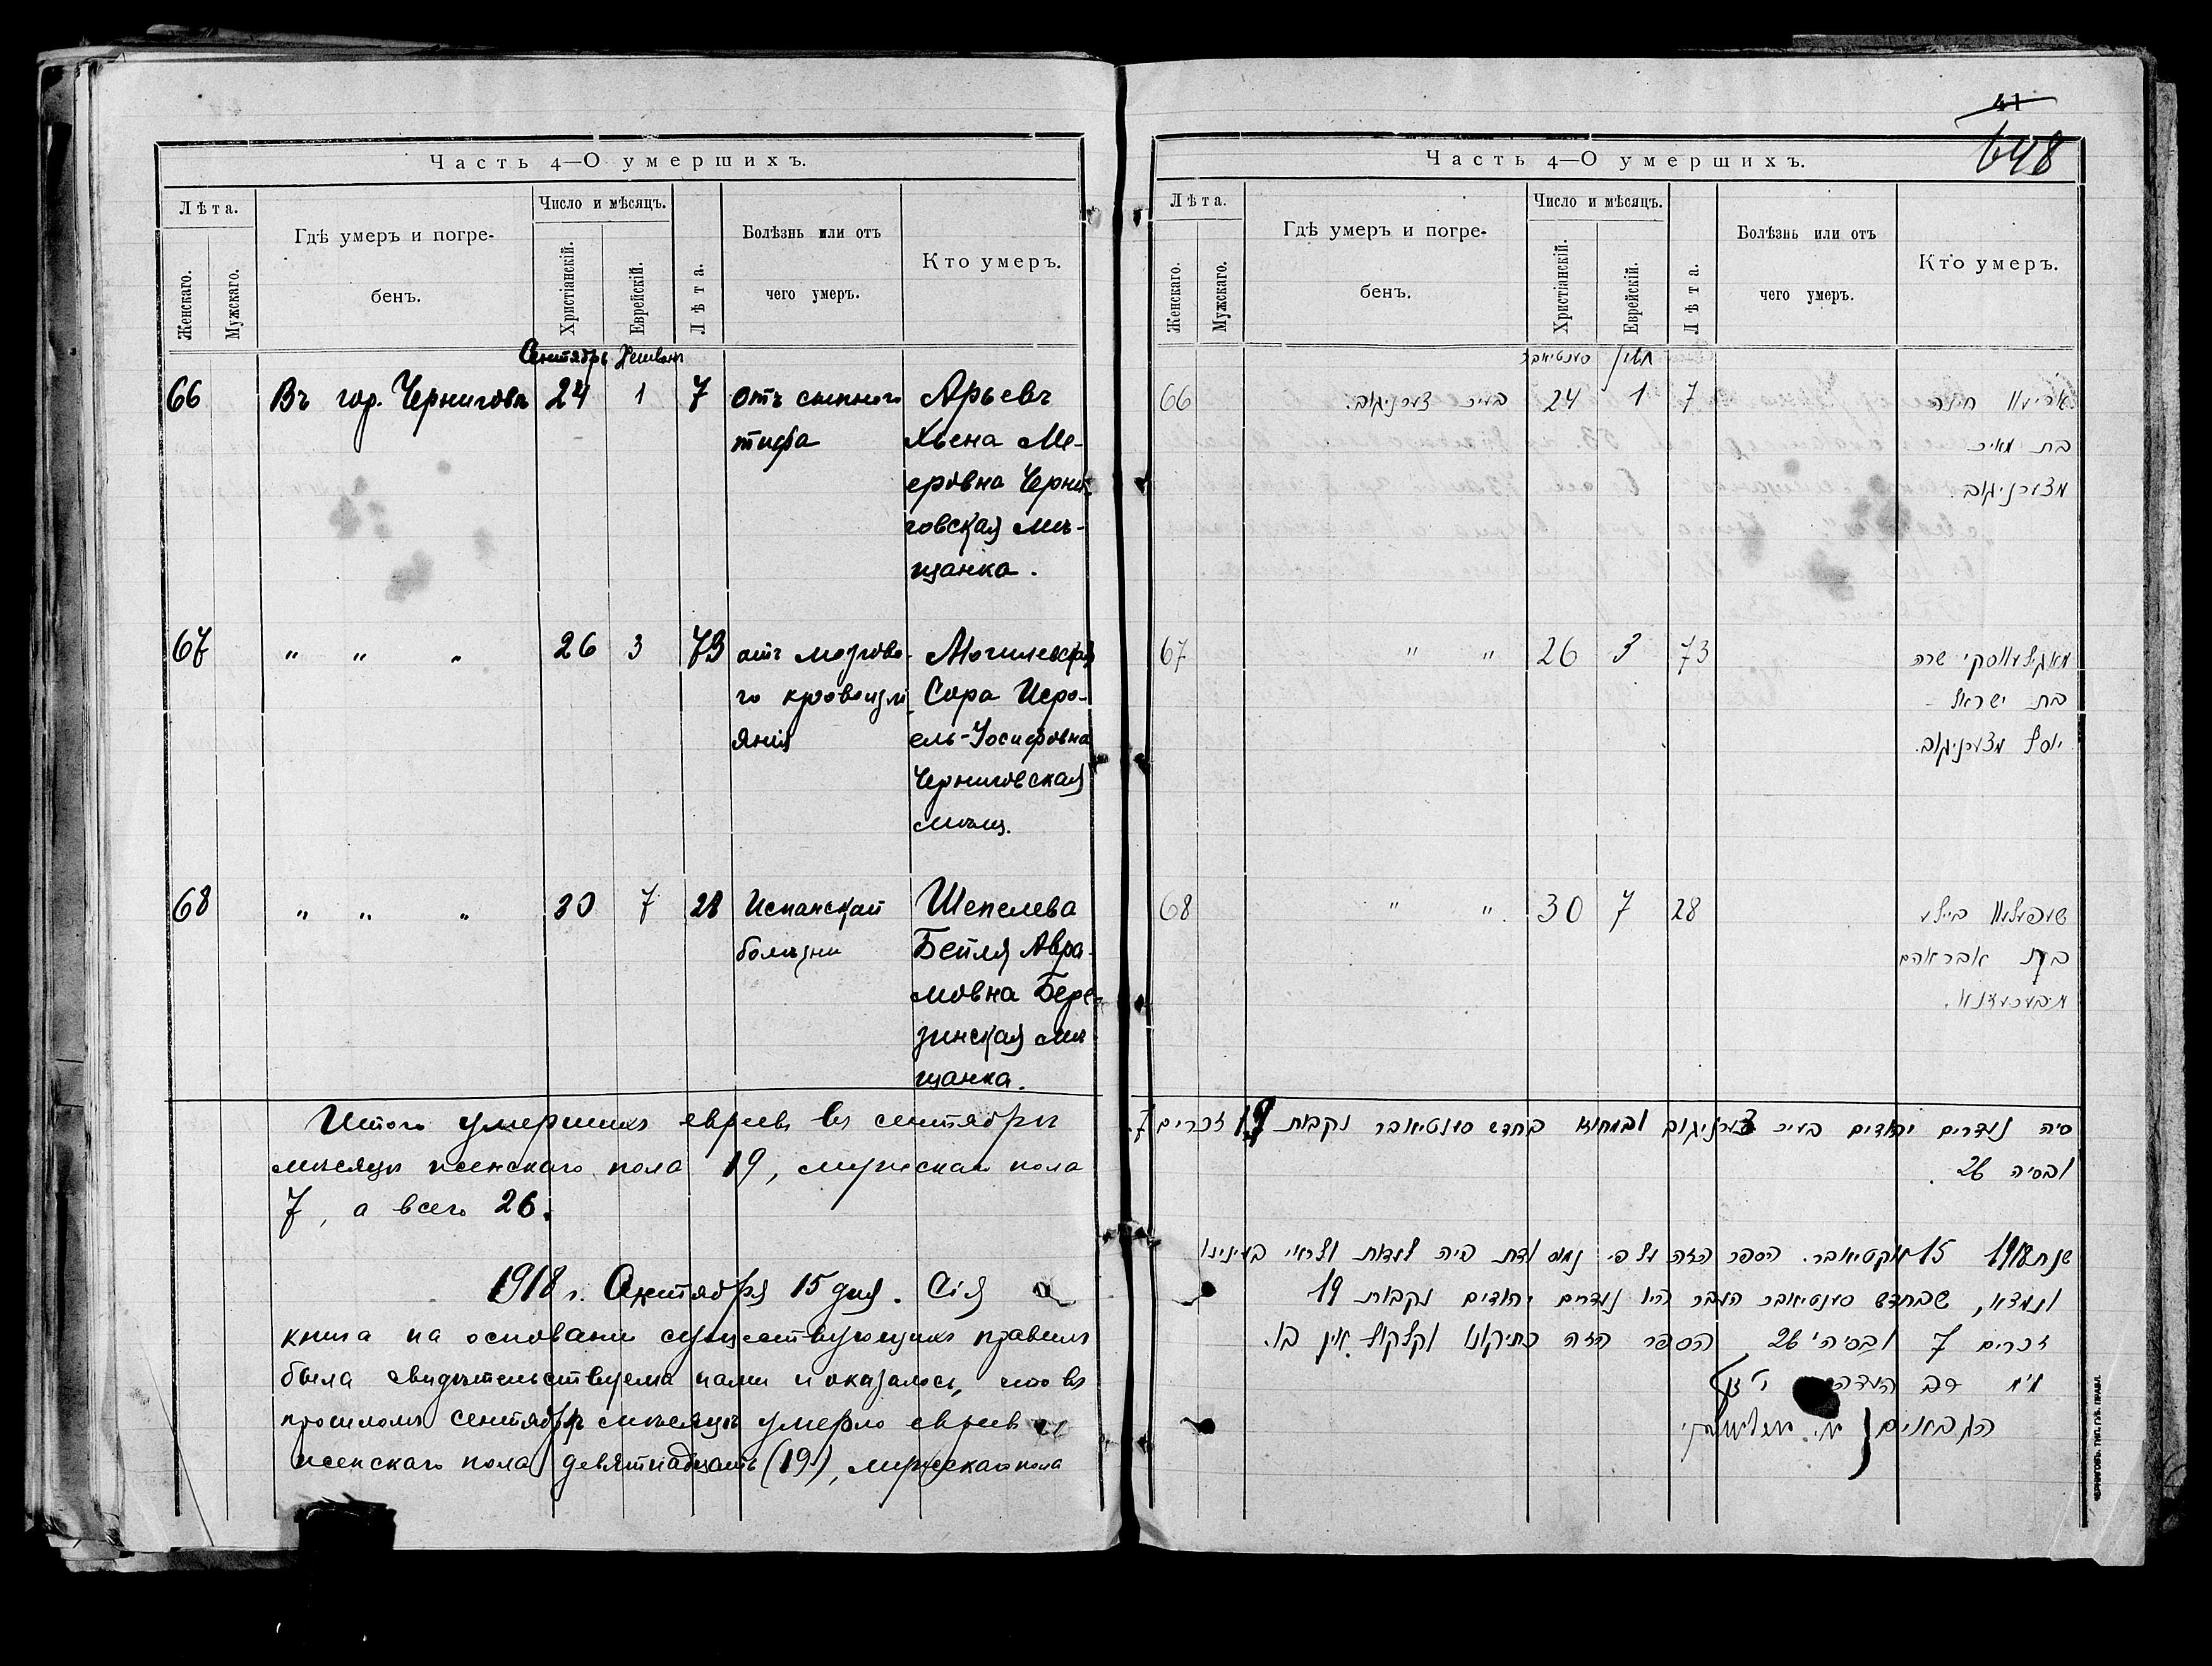 Часть 4—О умершихъ.
Лѣта.
Женскаго.
Мужскаго.
Гдѣ умеръ и погре-
бенъ.
Число и мѣсяцъ.
Христіанскій.
Еврейскій.
Лѣта.
Болѣзнь или отъ
чего умеръ.
Кто умеръ.
Сентябрь Хешванъ
66 Въ гор. Черниговѣ 24 1 7 отъ сыпного Арьевъ
тифа Хьена Ме-
еровна Черни-
говская мѣ-
щанка.
67 " " " 26 3 73 отъ мозгово- Могилевская
го кровоизлі- Сора Исро-
янія ель-Іосифовна
Черниговская
мѣщ.
68 " " " 30 7 28 Испанской Шепелева
болѣзни Бейля Авра-
мовна Бере-
зинская мѣ
щанка.
Итого умершихъ евреевъ въ сентябрѣ
мѣсяцѣ женскаго пола 19, мужскаго пола
7, а всего 26.
1918 г. Октября 15 дня. Сія
книга на основаніи существующихъ правилъ
была свидѣтельствуема нами и оказалось, что въ
прошломъ сентябрѣ мѣсяцѣ умерло евреевъ
женскаго пола девятнадцать (19), мужскаго пола
41
648
Часть 4—О умершихъ.
Лѣта.
Женскаго.
Мужскаго.
Гдѣ умеръ и погре-
бенъ.
Число и мѣсяцъ.
Христіанскій.
Еврейскій.
Лѣта.
Болѣзнь или отъ
чего умеръ.
Кто умеръ.
סענטיאבר חשון
66 בעיר צערניגוב. 24 1 7 אריעוו חינה
בת מאיר
מצערניגוב.
67 " " 26 3 73 מאגילעווסקי שרה
בת ישראל
יוסף מצערניגוב.
68 " " 30 7 28 שעפעלעוו ביילע
בת אבראהם
סיה נעדרים יהודים בעיר צערניגוב ובמחוזו בחדש סענטיאבר נקבות 19 זכרים 7.
ובסיה 26.
שנת 1918 15 אקטיאבר. הספר הזה על פי נמוס ודת היה לעדות ולראי בעינינו
ונמצא, שבחדש סענטיאבר העבר היו נעדרים יהודים נקבות 19
זכרים 7 ובסיה׳ 26 הספר הזה כתיקונו וקלקול אין בו.
רב העדה
הגבאים
ЧЕРНИГОВЪ. ТИП. ГУБ. ПРАВЛ.